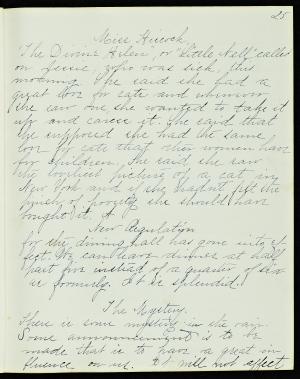 25
Miss Hiscock,
"The Divine Helen", or "Little Nell" called
on Jessie, who was sick, this
morning. She said she had a
great love for cats and whenever
she saw one she wanted to take it
up and caress it. She said that
she supposed she had the same
love for cats that other women have
for children. She said she saw
the loveliest picture of a cat in
New York and if she hadn't felt the
pinch of poverty she should have
bought it.
New Regulation
for the dining hall has gone into ef-
fect. We can leave dinner at half
past five instead of a quarter of six
as formerly. It is splendid!
The Mystery.
There is some mystery in the air.
Some announcement is to be
made that is to have a great in-
fluence on us. It will not affect